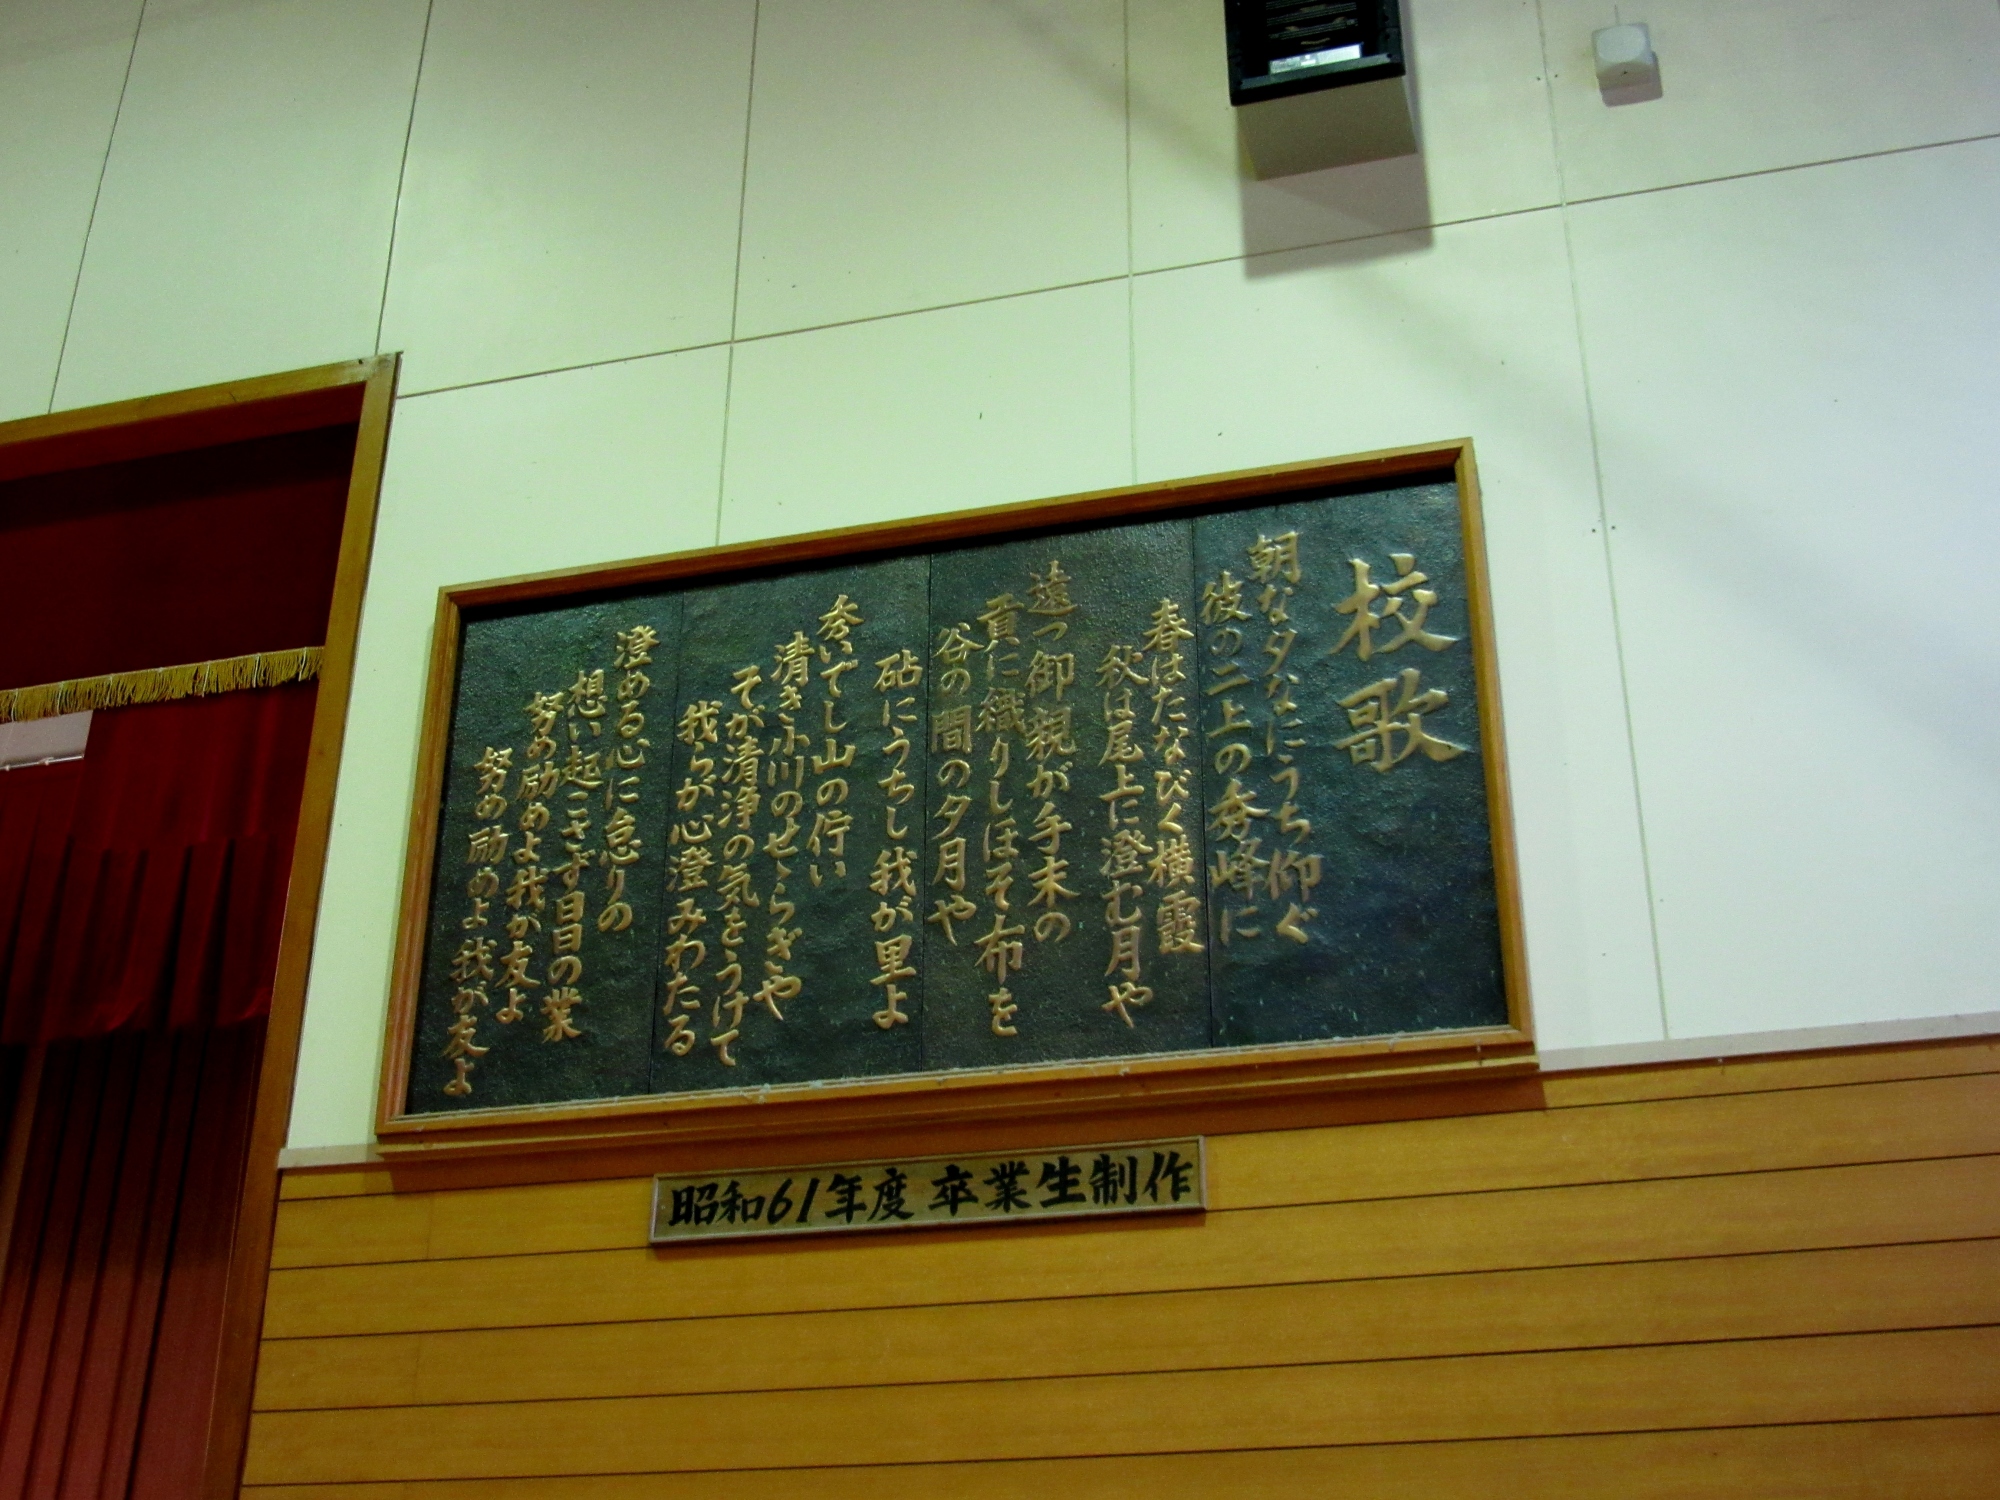 校歌
朝な夕なにうち仰ぐ
彼の二上の秀峰に
春はたなびく横霞
秋は尾上に澄む月や
遠つ御親が手末の
貢に織りしほそ布を
谷の間の夕月や
砧にうちし我が里よ
秀いでし山の佇い
清き小川のせゝらぎや
そが清浄の気をうけて
我らが心澄みわたる
澄める心に怠りの
想い起こさず日日の業
努め励めよ我が友よ
努め励めよ我が友よ
昭和61年度 卒業生制作